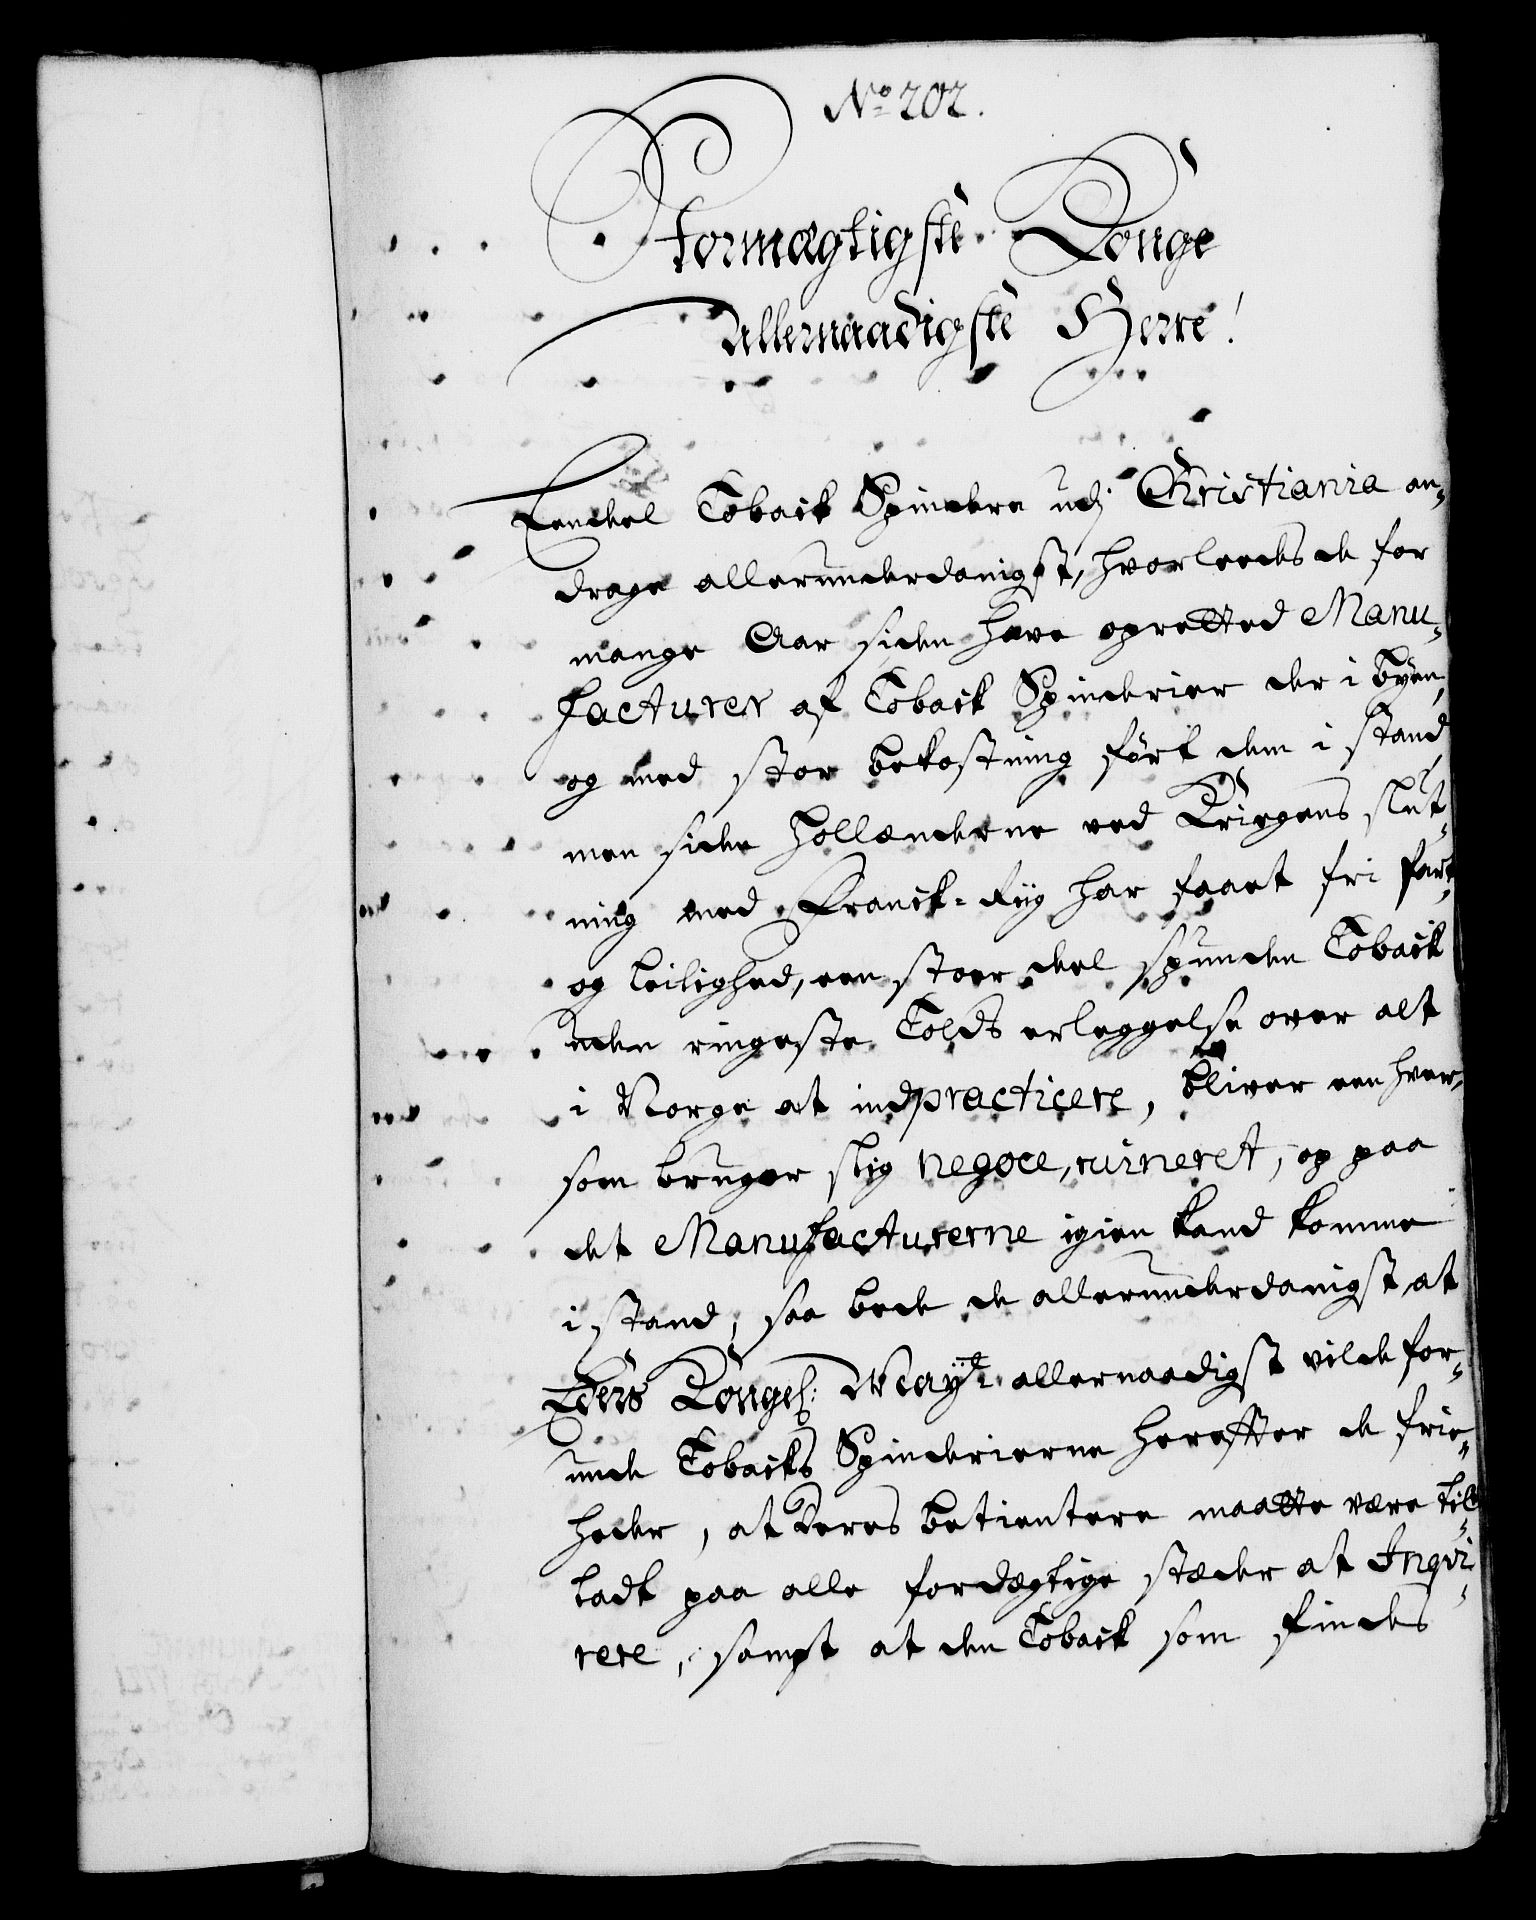 No 202.
Stormægtigste Konge
Allernaadigste Herre!
Eendeel Toback Spindere udj Christiania an-
drage allerunderdanigst, hvorleedes de for
mange Aar siden have opretted Manu-
facturer af Toback Spinderier der i Byen,
og med stor bekostning ført dem i stand,
men siden Hollænderne ved Kriigens slut-
ning med Franck-Riig har faaet fri fart
og leilighed, een stoer deel spunden Toback
uden ringeste Tolds erleggelse over alt
i Norge at indpracticere, bliver een hver,
som bruger slig negoce, ruineret, og paa
det Manufacturerne igien kand komme
i stand, saa bede de allerunderdanigst, at
Eders Kongel: Mayt allernaadigst vilde for-
unde Tobacks Spinderierne herefter de frie-
heder, at deres betientere maatte være til-
ladt paa alle fordægtige stæder at Inqvi-
rere, sampt at den Toback som findes